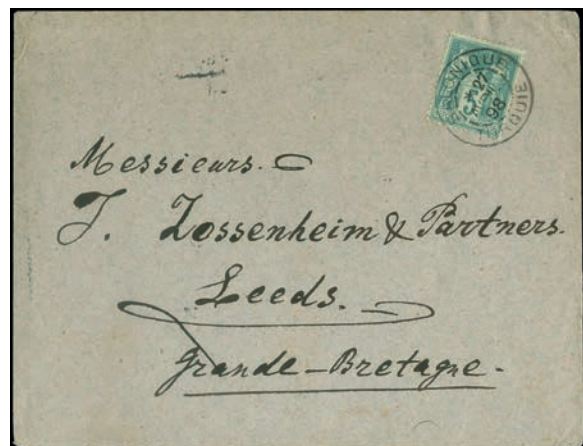 SALONIQUE
27
98
TURQUIE
Messieurs.
J. Zossenheim & Partners.
Leeds.
Grande-Bretagne.